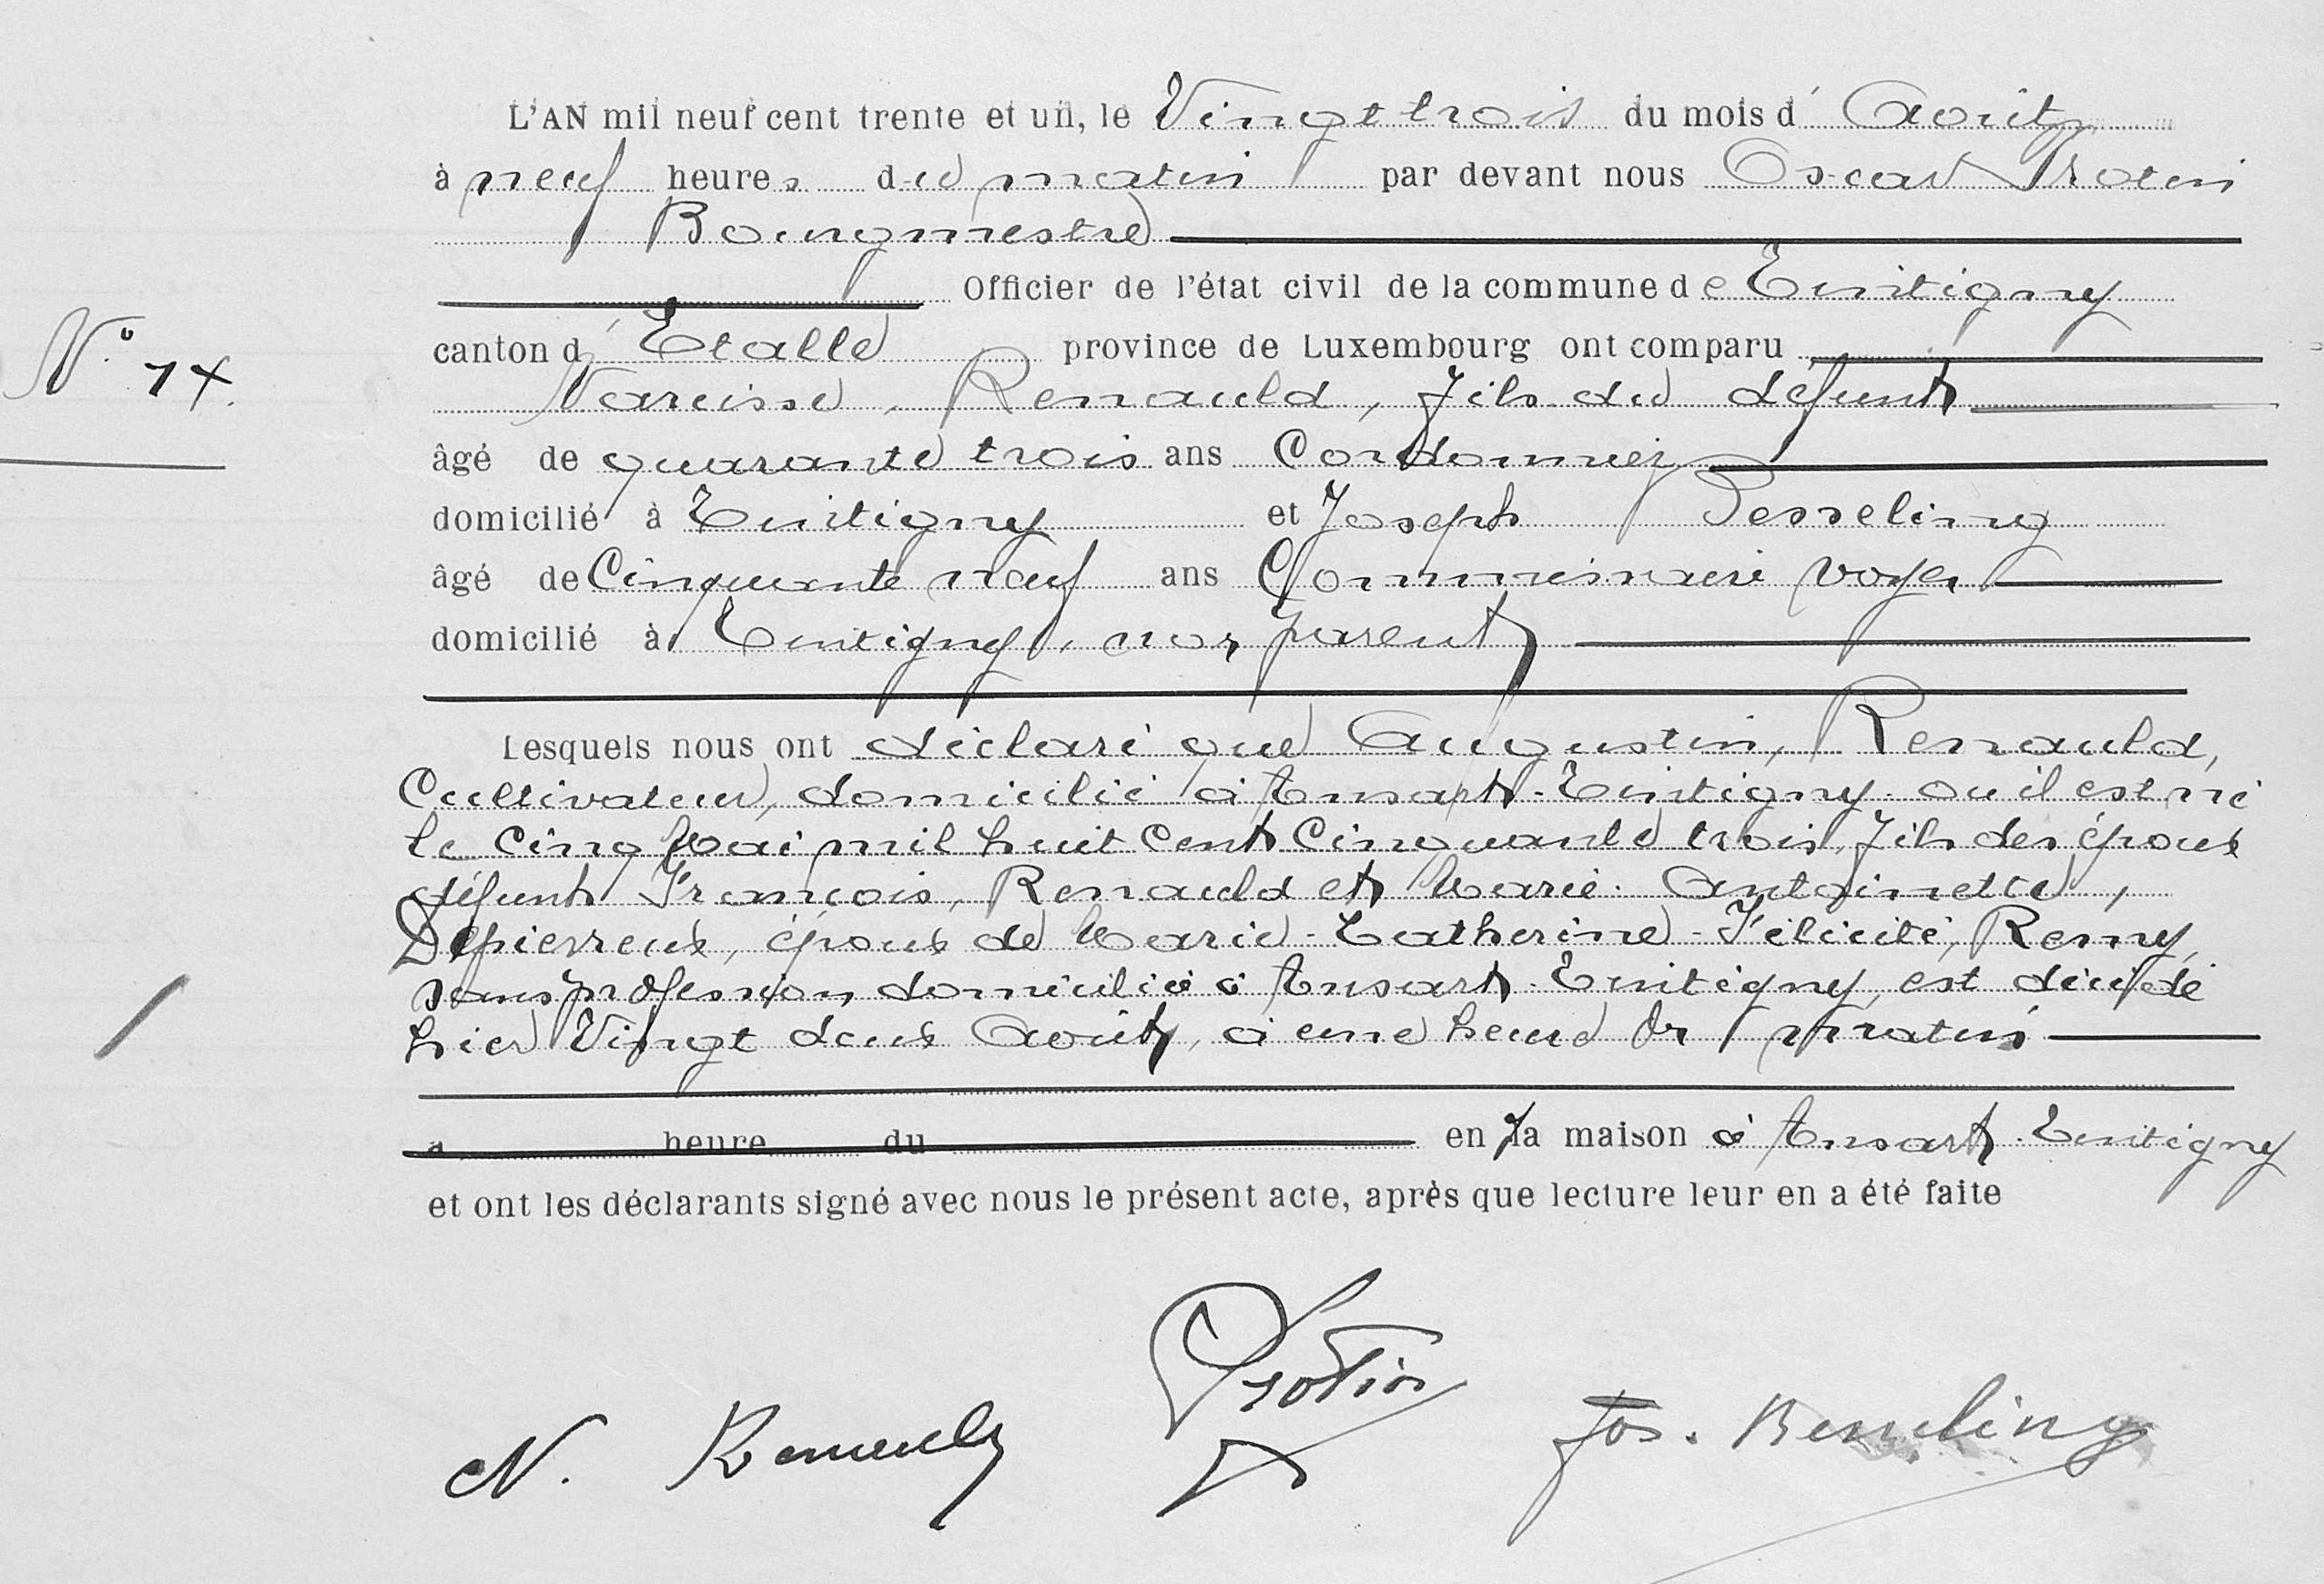 L'AN mil neuf cent trente et un, le Vingt trois du mois d' Août
à neuf heures du matin par devant nous Oscar Protin
Bourgmestre
Officier de l'état civil de la commune de Tintigny
N° 14.
canton d' Etalle province de Luxembourg ont comparu
Narcisse, Renauld, fils du défunt
âgé de quarante trois ans Cordonnier
domicilié à Tintigny et Joseph Besseling
âgé de Cinquante neuf ans Commissaire voyer
domicilié à Tintigny, non parent
Lesquels nous ont déclaré que Augustin, Renauld,
Cultivateur, domicilié à Ansart-Tintigny où il est né
le Cinq Mai mil huit Cent Cinquante trois, fils des époux
défunts François, Renauld et Marie-Antoinette,
Depierreux, époux de Marie-Catherine-Félicité, Remy,
sans profession domiciliée à Ansart-Tintigny, est décédé
hier Vingt deux Août, à une heure du matin
a heure du en sa maison à Ansart-Tintigny
et ont les déclarants signé avec nous le présent acte, après que lecture leur en a été faite
Protin
N. Renauld Jos. Besseling